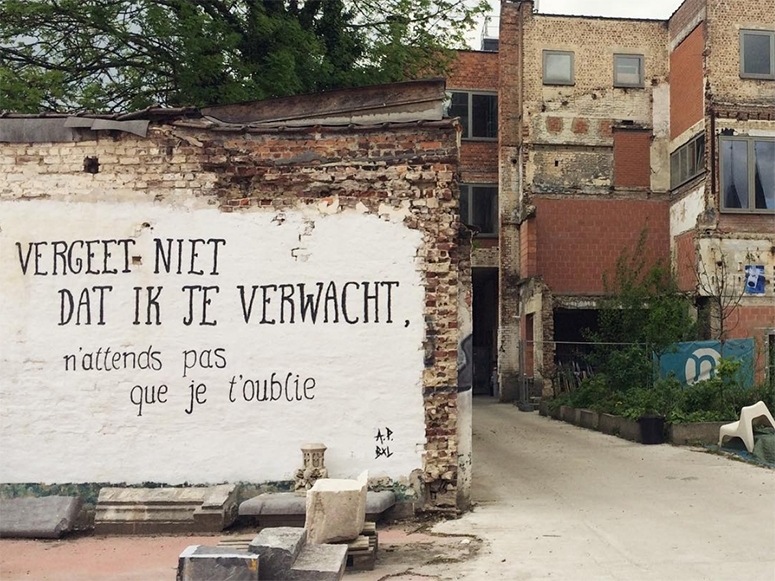 VERGEET NIET
DAT IK JE VERWACHT,
n'attends pas
que je t'oublie
A.P.
BXL
n